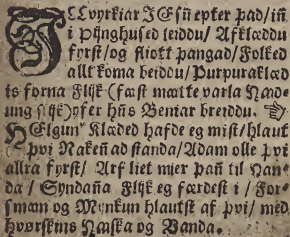 ILlvyrkiar JEsū epter þad/ iñ
i Þijnghused leiddu/ Afklæddu
fyrst/ og fliott þangad/ Folked
allt koma beiddu/ Purpuraklæd
is forna Flijk (fæst mætte varla Had-
ung slijk) yfer hñs Beniar breiddu. ☞
HElgunʳ Klæded hafde eg mist/ hlaut
þvi Nakeñ ad standa/ Adam olle þvi
allra fyrst/ Arf liet mier þañ til Han-
da/ Syndaña Flijk eg færdest i/ For-
smaan og Mynkun hlautst af þvi/ med
hvørskins Hæska og Vanda.